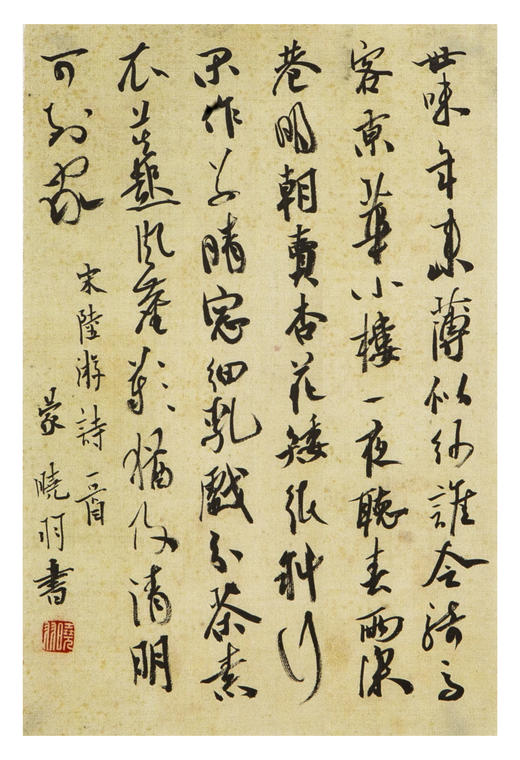 世味年来薄似紗誰令騎馬
客京華小樓一夜聽春雨深
巷明朝賣杏花矮紙斜行
閑作草晴窓細乳戲分茶素
衣莫起風塵歎猶及清明
可到家
宋陸游詩一首
蒙曉書